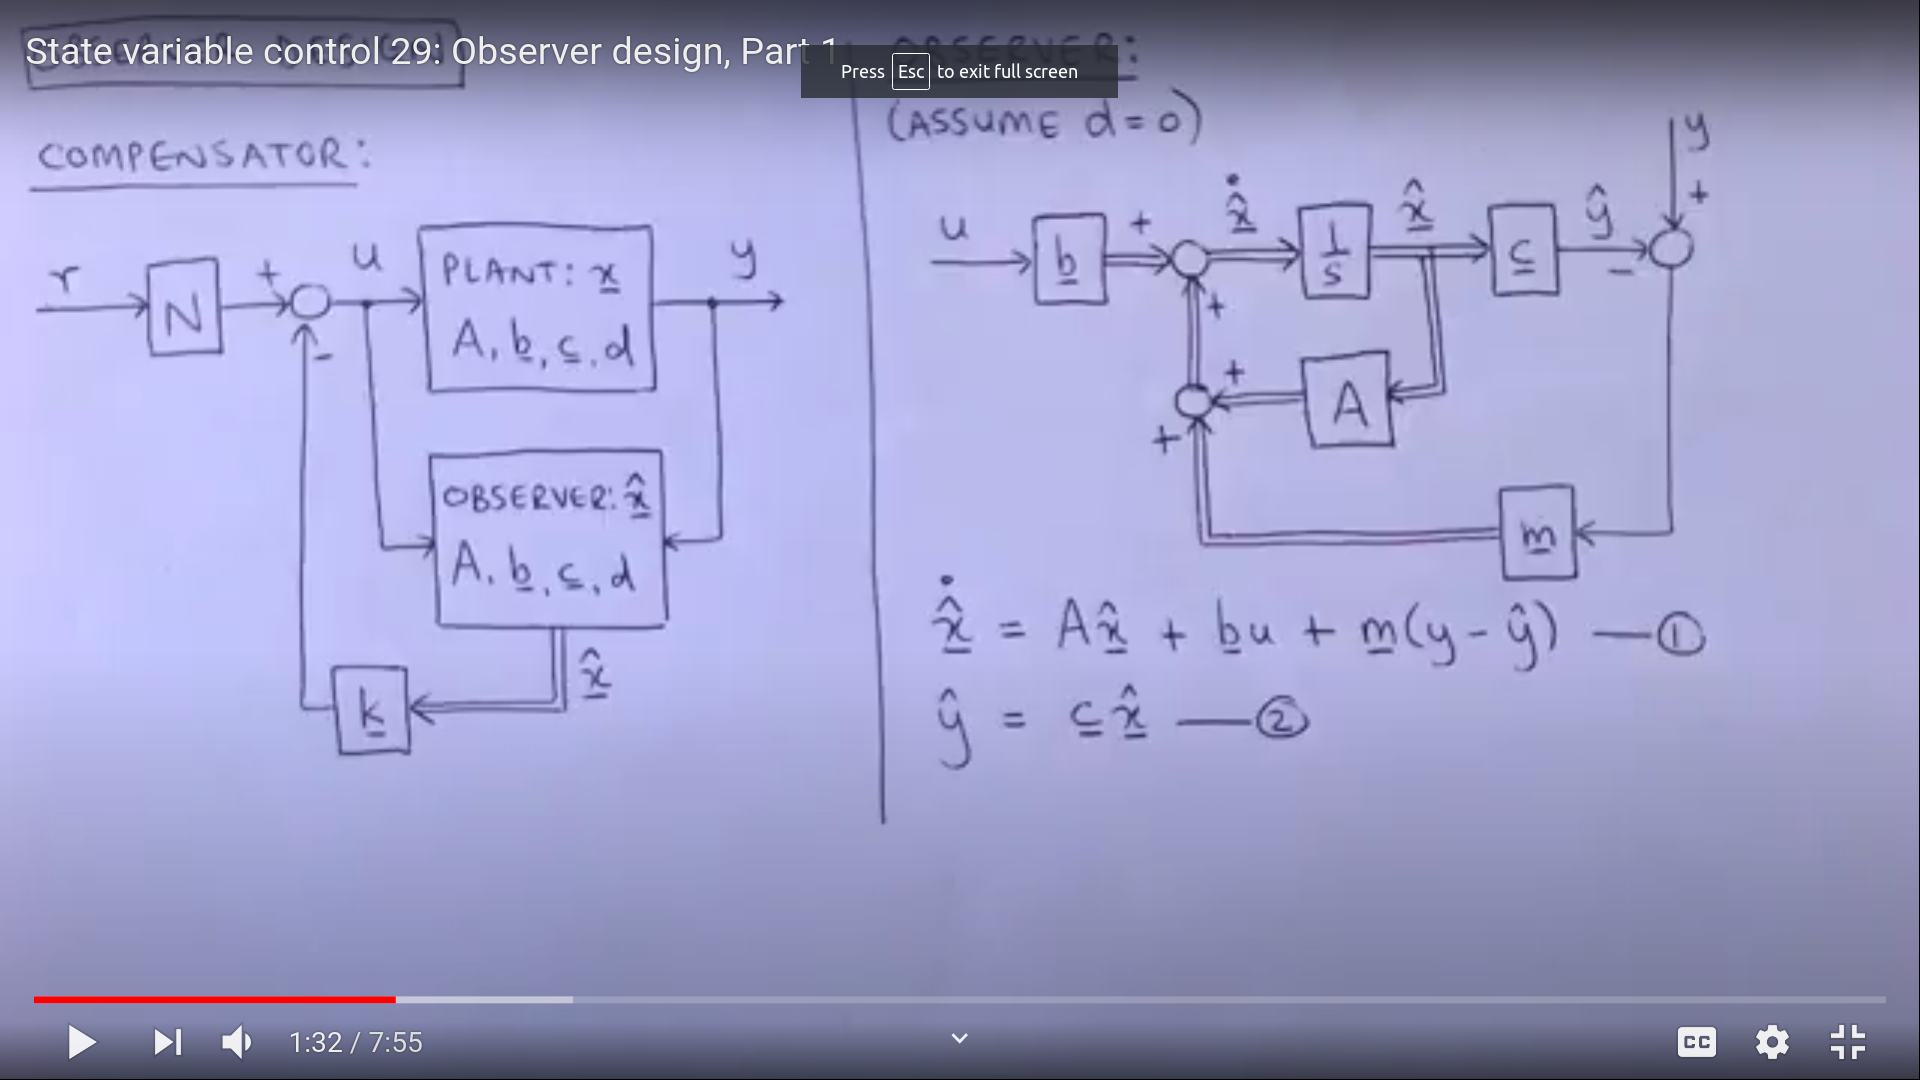 State variable control 29: Observer design, Part 1
Press Esc to exit full screen
COMPENSATOR:
r
N
+
-
u
PLANT: x̲
A, b̲, c̲, d
y
OBSERVER: x̲̂
A, b̲, c̲, d
x̲̂
k̲
OBSERVER:
(ASSUME d = 0)
u
b̲
+
ẋ̲̂
1/s
x̲̂
c̲
ŷ
-
y
+
+
A
+
+
m̲
ẋ̲̂ = Ax̲̂ + b̲u + m̲(y - ŷ) — ①
ŷ = c̲x̲̂ — ②
1:32 / 7:55
CC